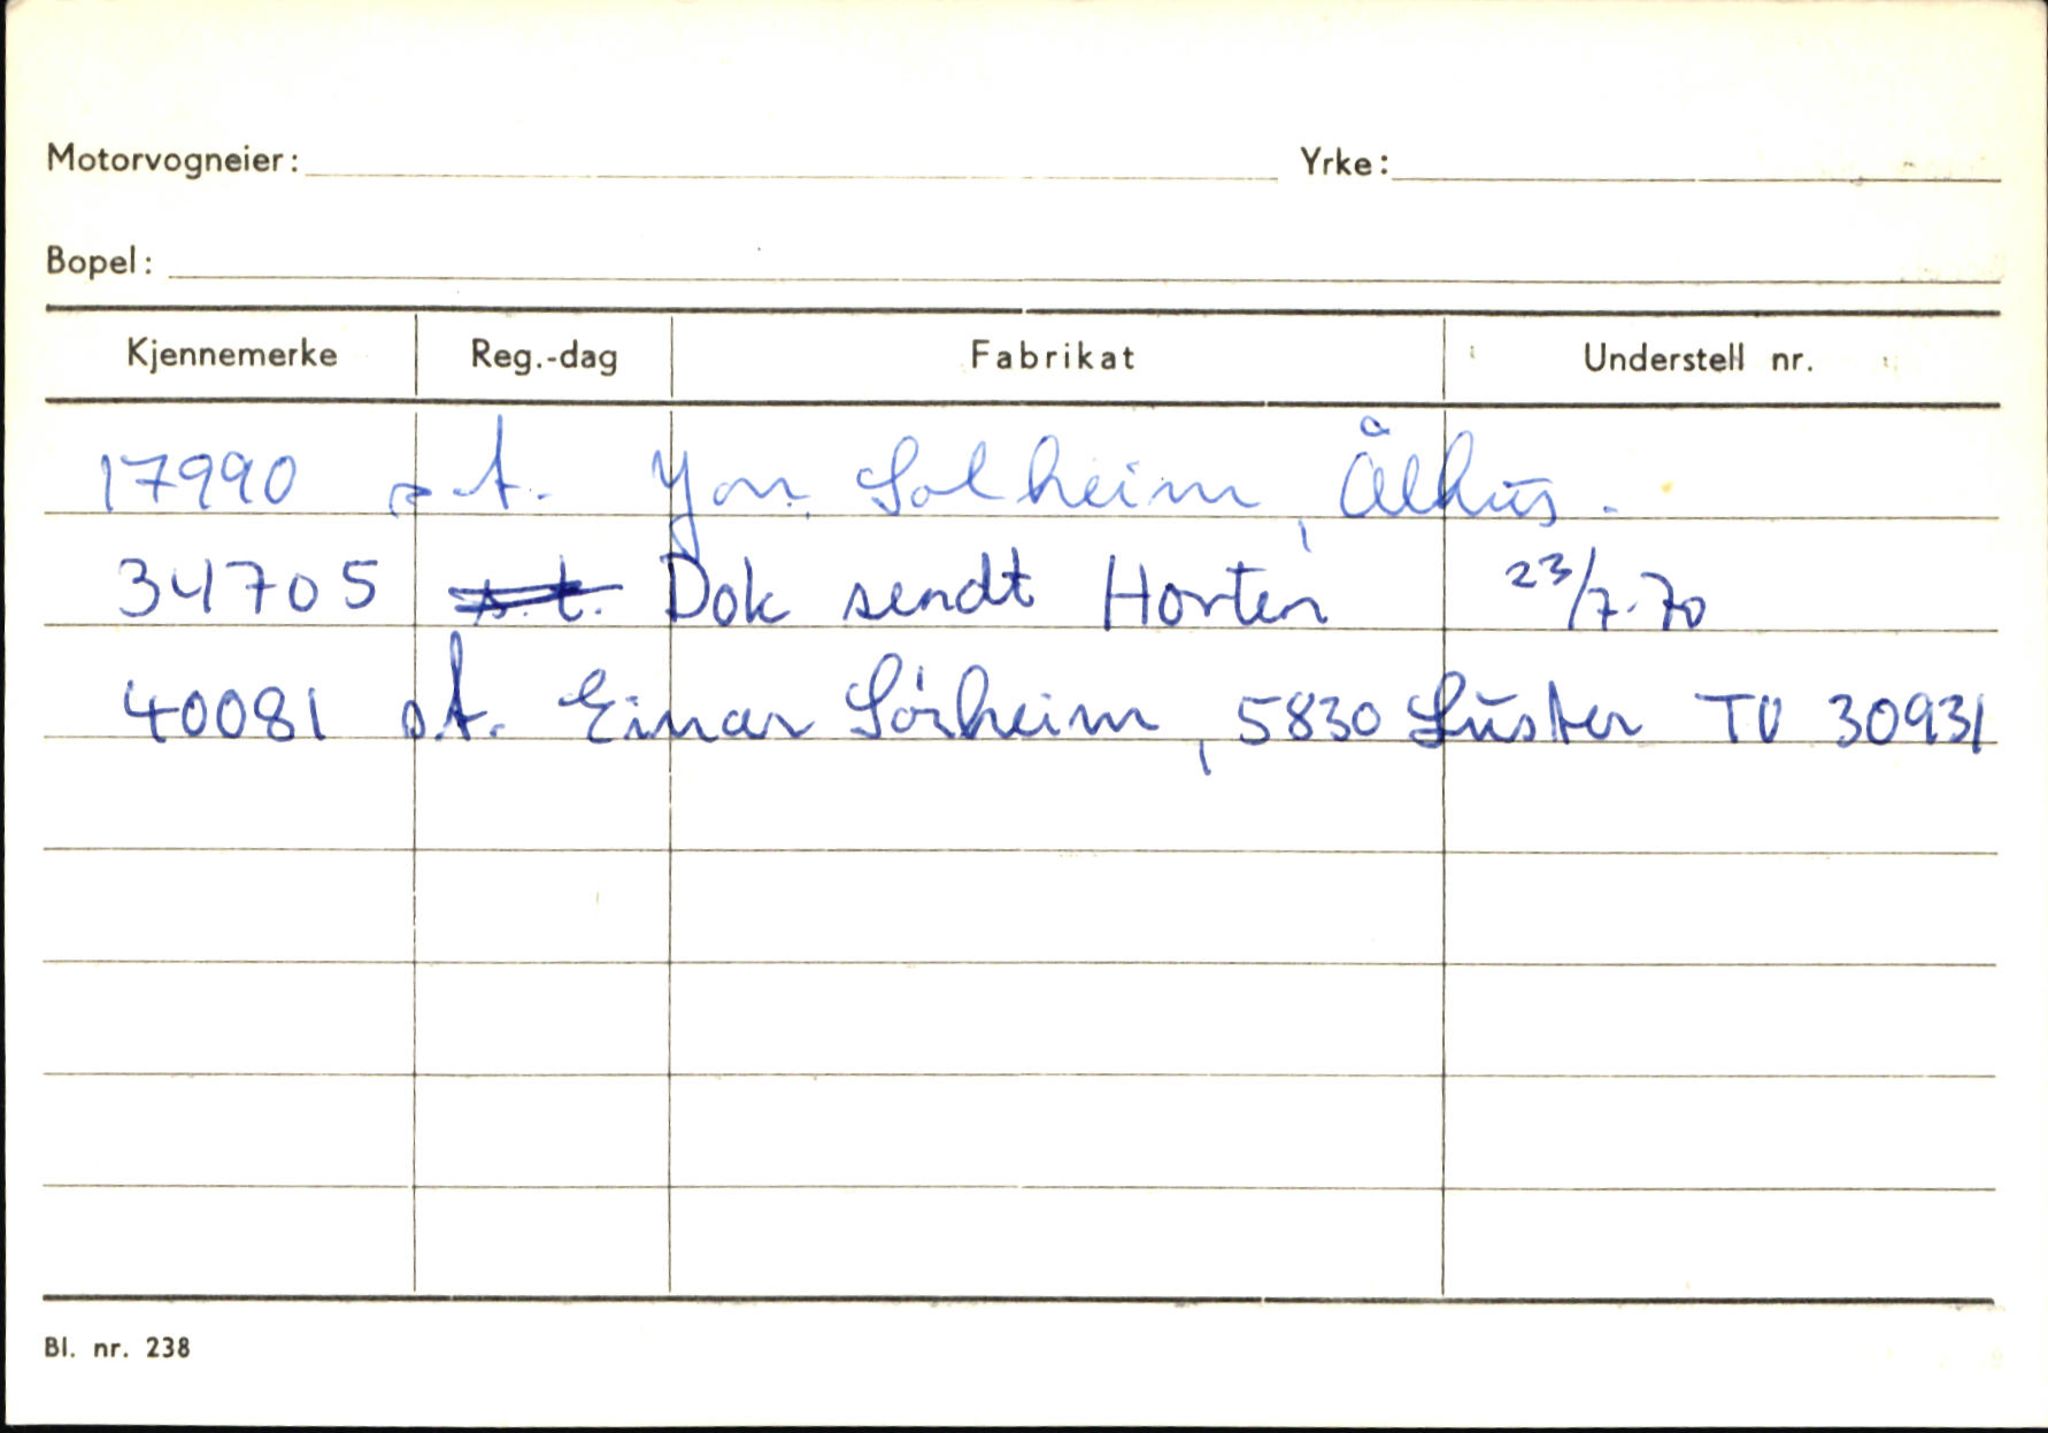 Motorvogneier: Yrke:
Bopel:
Kjennemerke Reg.-dag Fabrikat Understell nr.
17990 s.t. Jon Solheim, Ålhus.
34705 s.t. Dok sendt Horten 23/7-70
40081 s.t. Einar Sörheim, 5830 Luster TU 30931
Bl. nr. 238